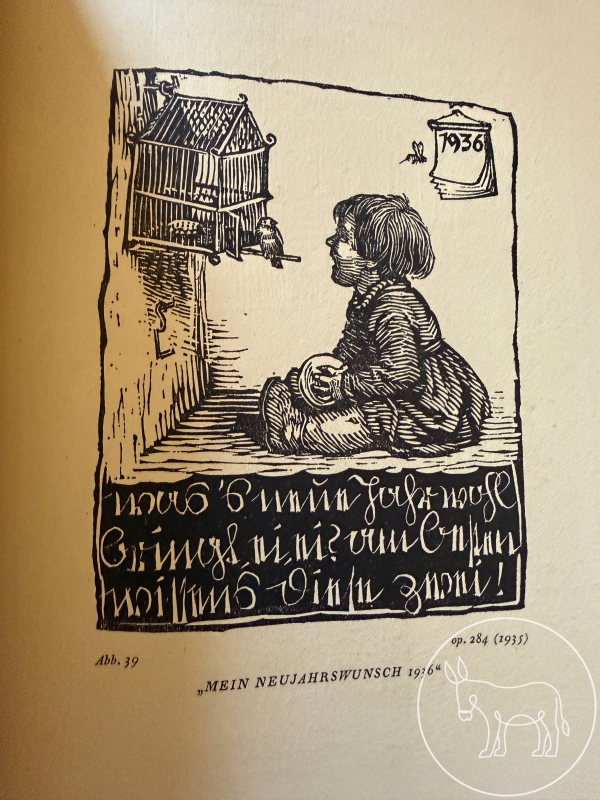 1936
was 's neue Jahr wohl
bringt, ei, ei? am besten
wissens diese zwei!
Abb. 39
op. 284 (1935)
„MEIN NEUJAHRSWUNSCH 1936“